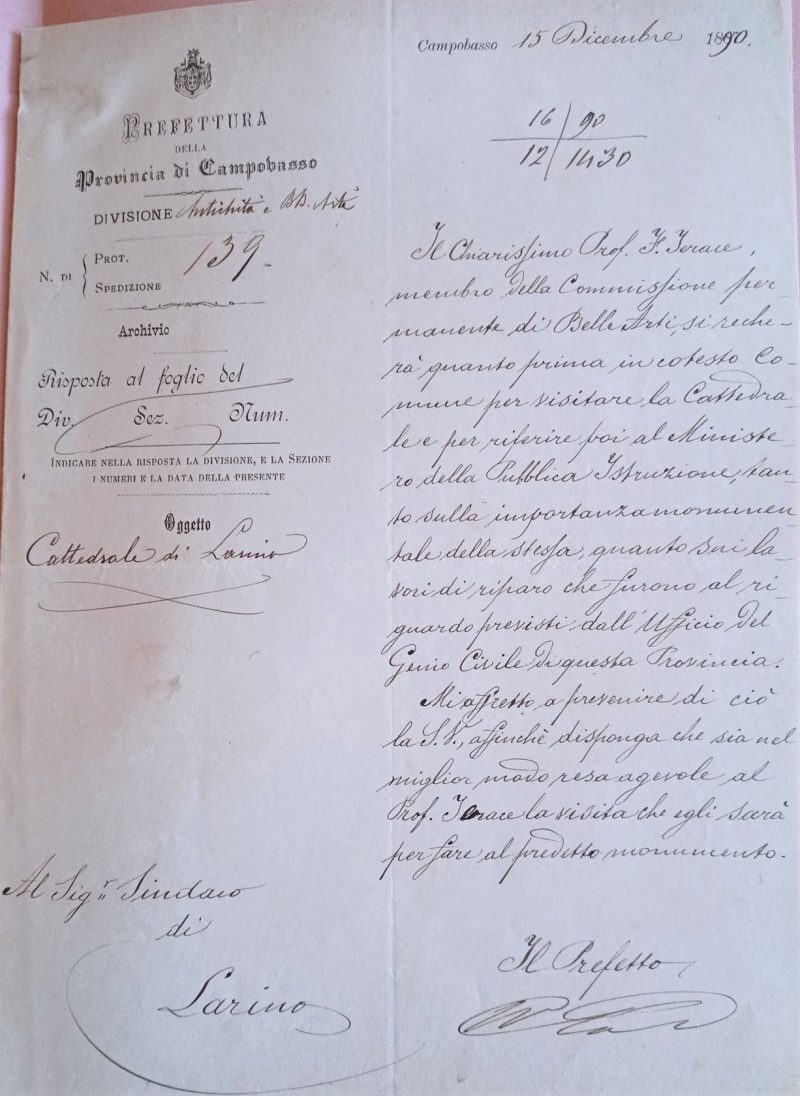 PREFETTURA
DELLA
Provincia di Campobasso
DIVISIONE Antichità e BB. Arti
N. DI { PROT. 139
SPEDIZIONE
Archivio
Risposta al foglio del
Div. Sez. Num.
INDICARE NELLA RISPOSTA LA DIVISIONE, E LA SEZIONE
I NUMERI E LA DATA DELLA PRESENTE
Oggetto
Cattedrale di Larino
Al Sigr. Sindaco
di
Larino
Campobasso 15 Dicembre 1890.
16 90
12 1430
Il Chiarissimo Prof. F. Jerace,
membro della Commissione per-
manente di Belle Arti, si reche-
rà quanto prima in cotesto Co-
mune per visitare la Cattedra-
le e per riferire poi al Ministe-
ro della Pubblica Istruzione, tan-
to sulla importanza monumen-
tale della stessa, quanto sui la-
vori di riparo che furono al ri-
guardo previsti dall'Ufficio del
Genio Civile di questa Provincia.
Mi affretto a prevenire di ciò
la S.V., affinchè disponga che sia nel
miglior modo resa agevole al
Prof. Jerace la visita che egli sarà
per fare al predetto monumento.
Il Prefetto